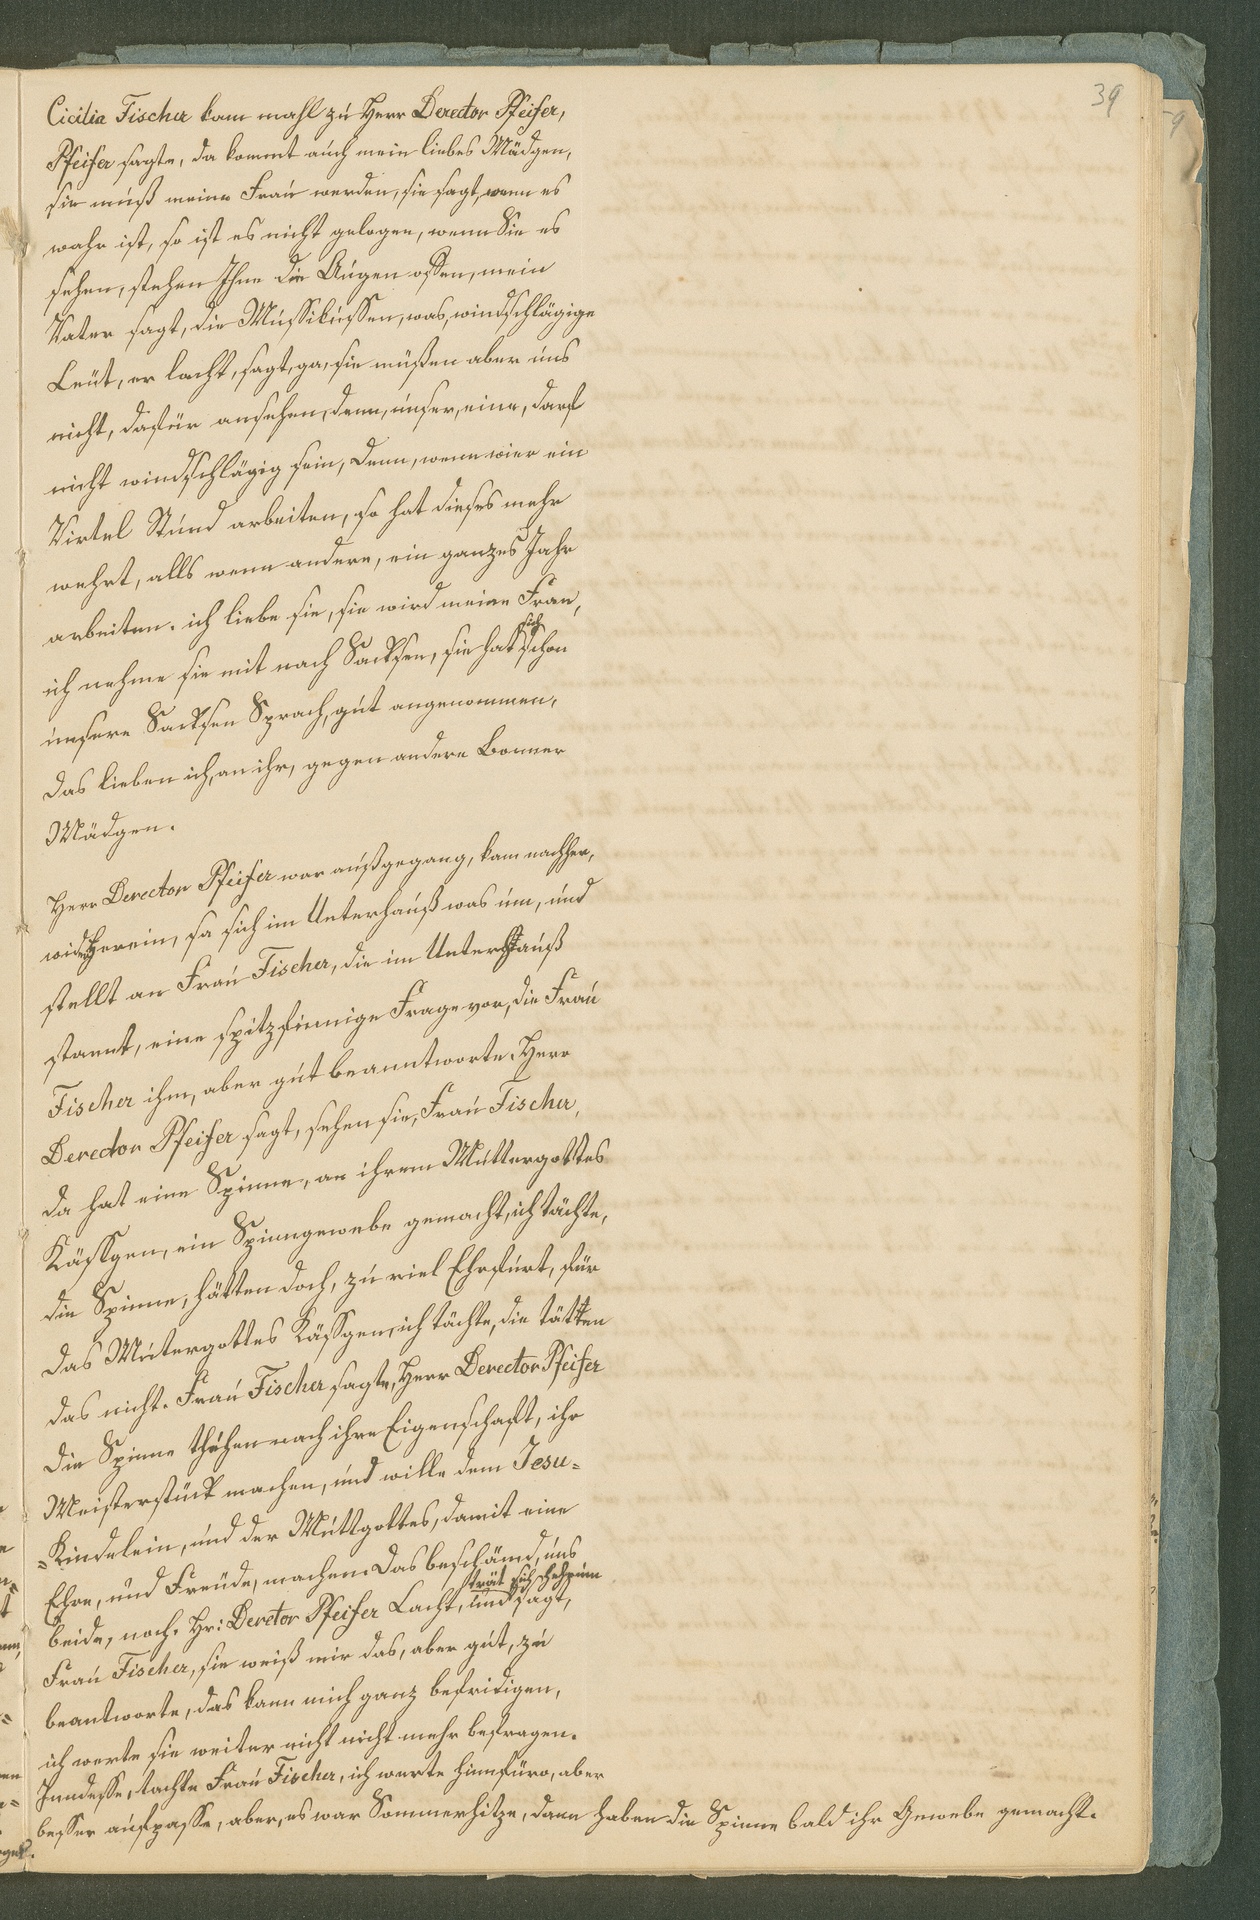 39
Cicilia Fischer kam mahl zu Herr Derector Pfeifer,
Pfeifer sagte, da kommt auch mein liebes Mädgen,
sie muß meine Frau werden, sie sagt, wenn es
wahr ist, so ist es nicht gelogen, wenn Sie es
sehen, stehen Ihne die Augen offen, mein
Vater sagt, die Mussikussen, was, windschlägige
Leüt, er lacht, sagt, ga, sie müßen aber uns
nicht, dafür ansehen, denn, unser, eine, darf
nicht windschlägig sein, Denn, wenn wier ein
Virtel Stund arbeiten, so hat dieses mehr
wehrt, alls wenn andere, ein ganzes Jahr
arbeiten. ich liebe sie, sie wird meine Frau,
ich nehme sie mit nach Sacksen, sie hat sich schon
unsere Sacksen Sprach, gut angenommen,
das lieben ich, an ihr, gegen andere Bonner
Mädgen.
Herr Derector Pfeifer war außgegang, kam nachher,
wider Herein, sa sich im Unterhauß was um, und
stellt an Frau Fischer, die im Unterhauß
stannt, eine spitzfinnige Frage vor, die Frau
Fischer ihm, aber gut beanntworte. Herr
Derector Pfeifer sagt, sehen sie, Frau Fischer,
da hat eine Spinne, an ihrem Muttergottes
Kässgen, ein Spinngewebe gemacht, ich tächte,
die Spinne, hätten doch, zu viel Ehrfurt, für
das Mutergottes Kässgen, ich tächte, die tätten
das nicht. Frau Fischer sagte, Herr Derector Pfeifer
die Spinne thuhen nach ihre Eigenschaft, ihr
Meisterstück machen, und wille dem Jesu=
=Kindelein, und der Muttgottes, damit eine
Ehre, und Freude, machen. Das beschämd, uns
beide, noch. Hr: Deretor Pfeifer Lacht, trät sich herum und sagt,
Frau Fischer, sie weiß mir das, aber gut, zu
beantworte, das kann mich ganz befridigen,
ich werte sie weiter nicht nicht mehr befragen.
Inndesse, tachte Frau Fischer, ich werte hinnfüro, aber
besser aufpasse, aber, es war Sommerhitze, dann haben die Spinne bald ihr Gewebe gemacht.